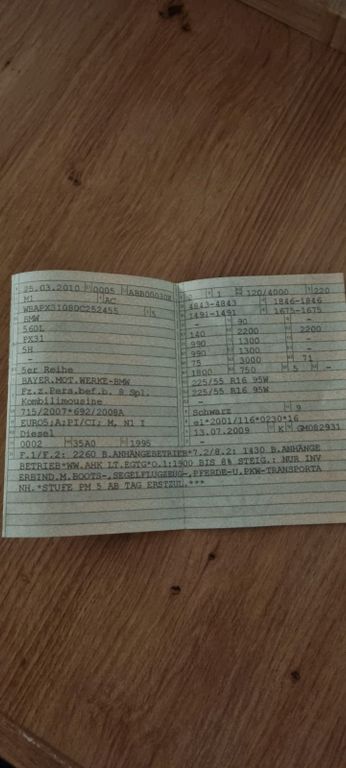 25.03.2010 0005
M1 AC
WBAPX31080C252455
BMW
560L
PX31
5H
-
5er Reihe
BAYER.MOT.WERKE-BMW
Fz.z.Pers.bef.b. 8 Spl.
Kombilimousine
715/2007*692/2008A
EURO5;A:PI/CI; M, N1 I
Diesel
0002 35A0 1995
1 120/4000 220
4843-4843 1846-1846
1491-1491 1675-1675
- 90 -
140 2200 2200
990 1300 -
990 1300 -
75 3000 71
1800 750 5 -
225/55 R16 95W
225/55 R16 95W
-
Schwarz 9
e1*2001/116*0230*16
13.07.2009 K
-
F.1/F.2: 2260 B.ANHÄNGEBETRIEB*7.2/8.2: 1430 B.ANHÄNGE
BETRIEB*WW.AHK LT.EGTG*O.1:1900 BIS 8% STEIG.: NUR INV
ERBIND.M.BOOTS-,SEGELFLUGZEUG-,PFERDE-U.PKW-TRANSPORTA
NH.*STUFE PM 5 AB TAG ERSTZUL.***